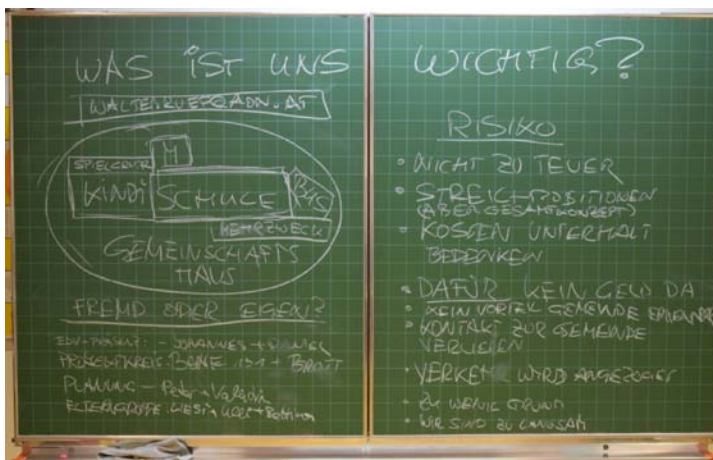 WAS IST UNS WICHTIG?
M
SPIELGRUPPE
KINDI SCHULE
MEHRZWECK
GEMEINSCHAFTS
HAUS
FREMD ODER EIGEN?
EDV + PRÄSENT: - JOHANNES + DANIEL
PLANUNG - Peter + Valentin
ELTERNGRUPPE: LIESI + ULLI + Bettina
RISIKO
• NICHT ZU TEUER
• STREICHPOSITIONEN
(ABER GESAMTKONZEPT)
• KOSTEN UNTERHALT
BEDENKEN
• DAFÜR KEIN GELD DA
• KEIN VORTEIL GEMEINDE
• KONTAKT ZUR GEMEINDE
VERLIEREN
• VERKEHR WIRD ANGEZOGEN
• ZU WENIG GRUND
• WIR SIND ZU LANGSAM